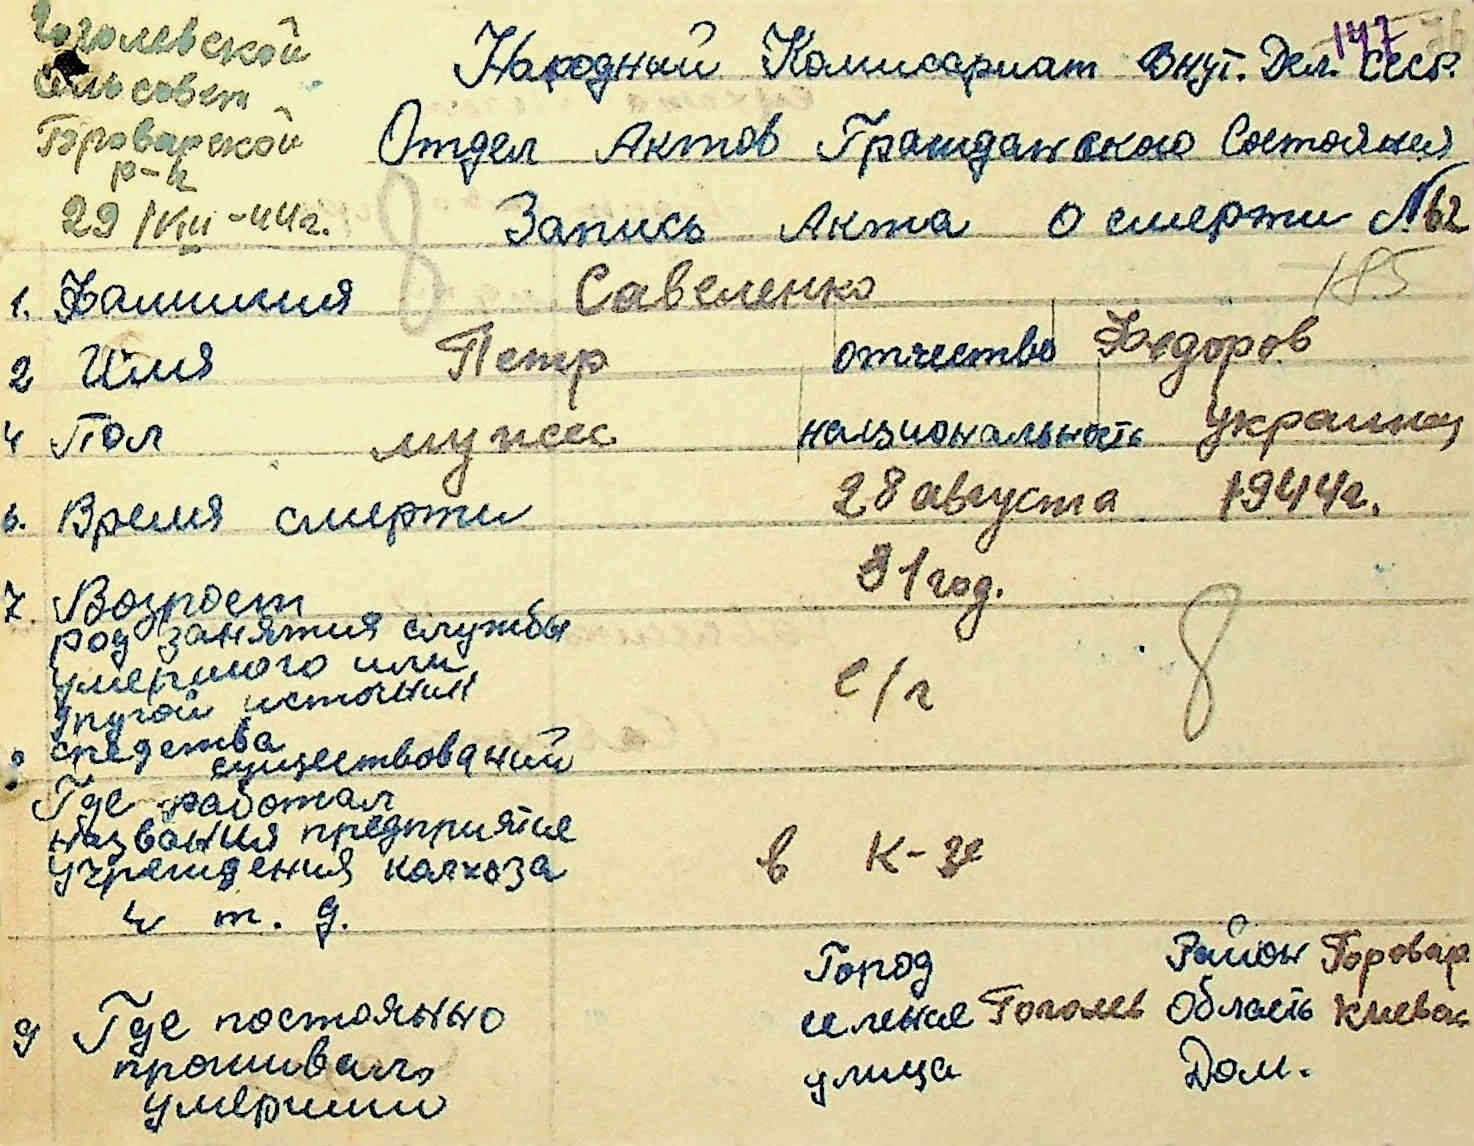 Гоголевской
Сельсовет
Броварской
р-н
29/VIII-44г.
147
Народный Комисариат Внут. Дел. СССР.
Отдел Актов Гражданского Состояния
Запись Акта о смерти №62
185
1. Фамилия Савеленко
2 Имя Петр отчество Федоров
4 Пол мужс национальность украинец
6. Время смерти 28 августа 1944г.
7. Возрост 81 год.
род занятия службы
умершого или
другой источник
средства
существований
с/г
8
Где работал
названия предприятие
учреждения калхоза
и т. д.
в к-зе
9 Где постоянно
проживал
умерший
Город Район Бровар
селение Гоголев Область Киевск
улица Дом.